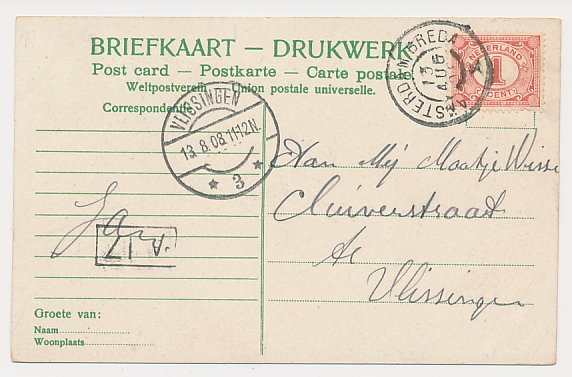 BRIEFKAART — DRUKWERK
Post card — Postkarte — Carte postale.
Weltpostverein. Union postale universelle.
Correspondentie
AMSTERDAM BREDA
13 AUG
A
NEDERLAND
1
CENT
VLISSINGEN
13.8.08.11-12N.
* 3 *
Aan Mej Maatje Wisse
Cluiverstraat
te
Vlissingen
Jan
A17
Groete van:
Naam
Woonplaats